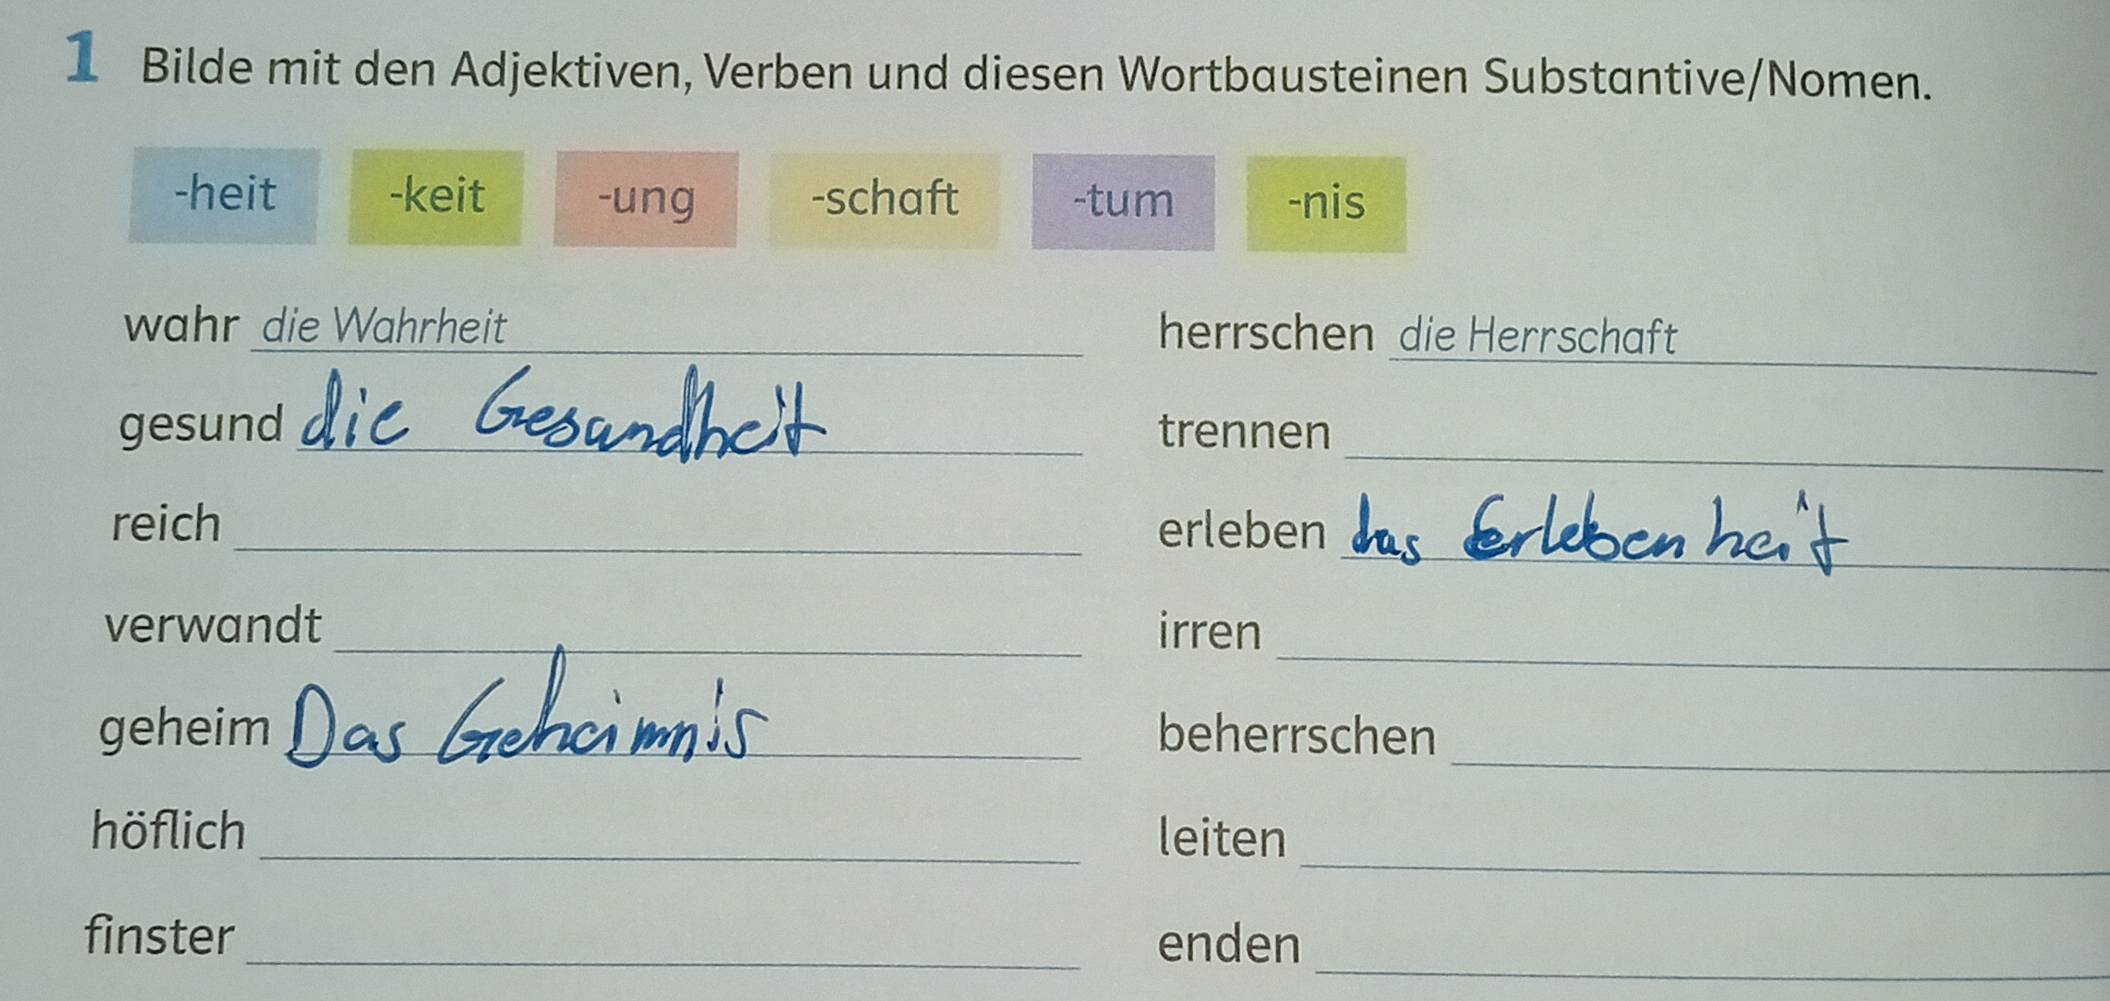 1 Bilde mit den Adjektiven, Verben und diesen Wortbausteinen Substantive/Nomen.
-heit -keit -ung -schaft -tum -nis
wahr die Wahrheit herrschen die Herrschaft
gesund die Gesandheit trennen
reich erleben das Erlebenheit
verwandt irren
geheim Das Geheimnis beherrschen
höflich leiten
finster enden